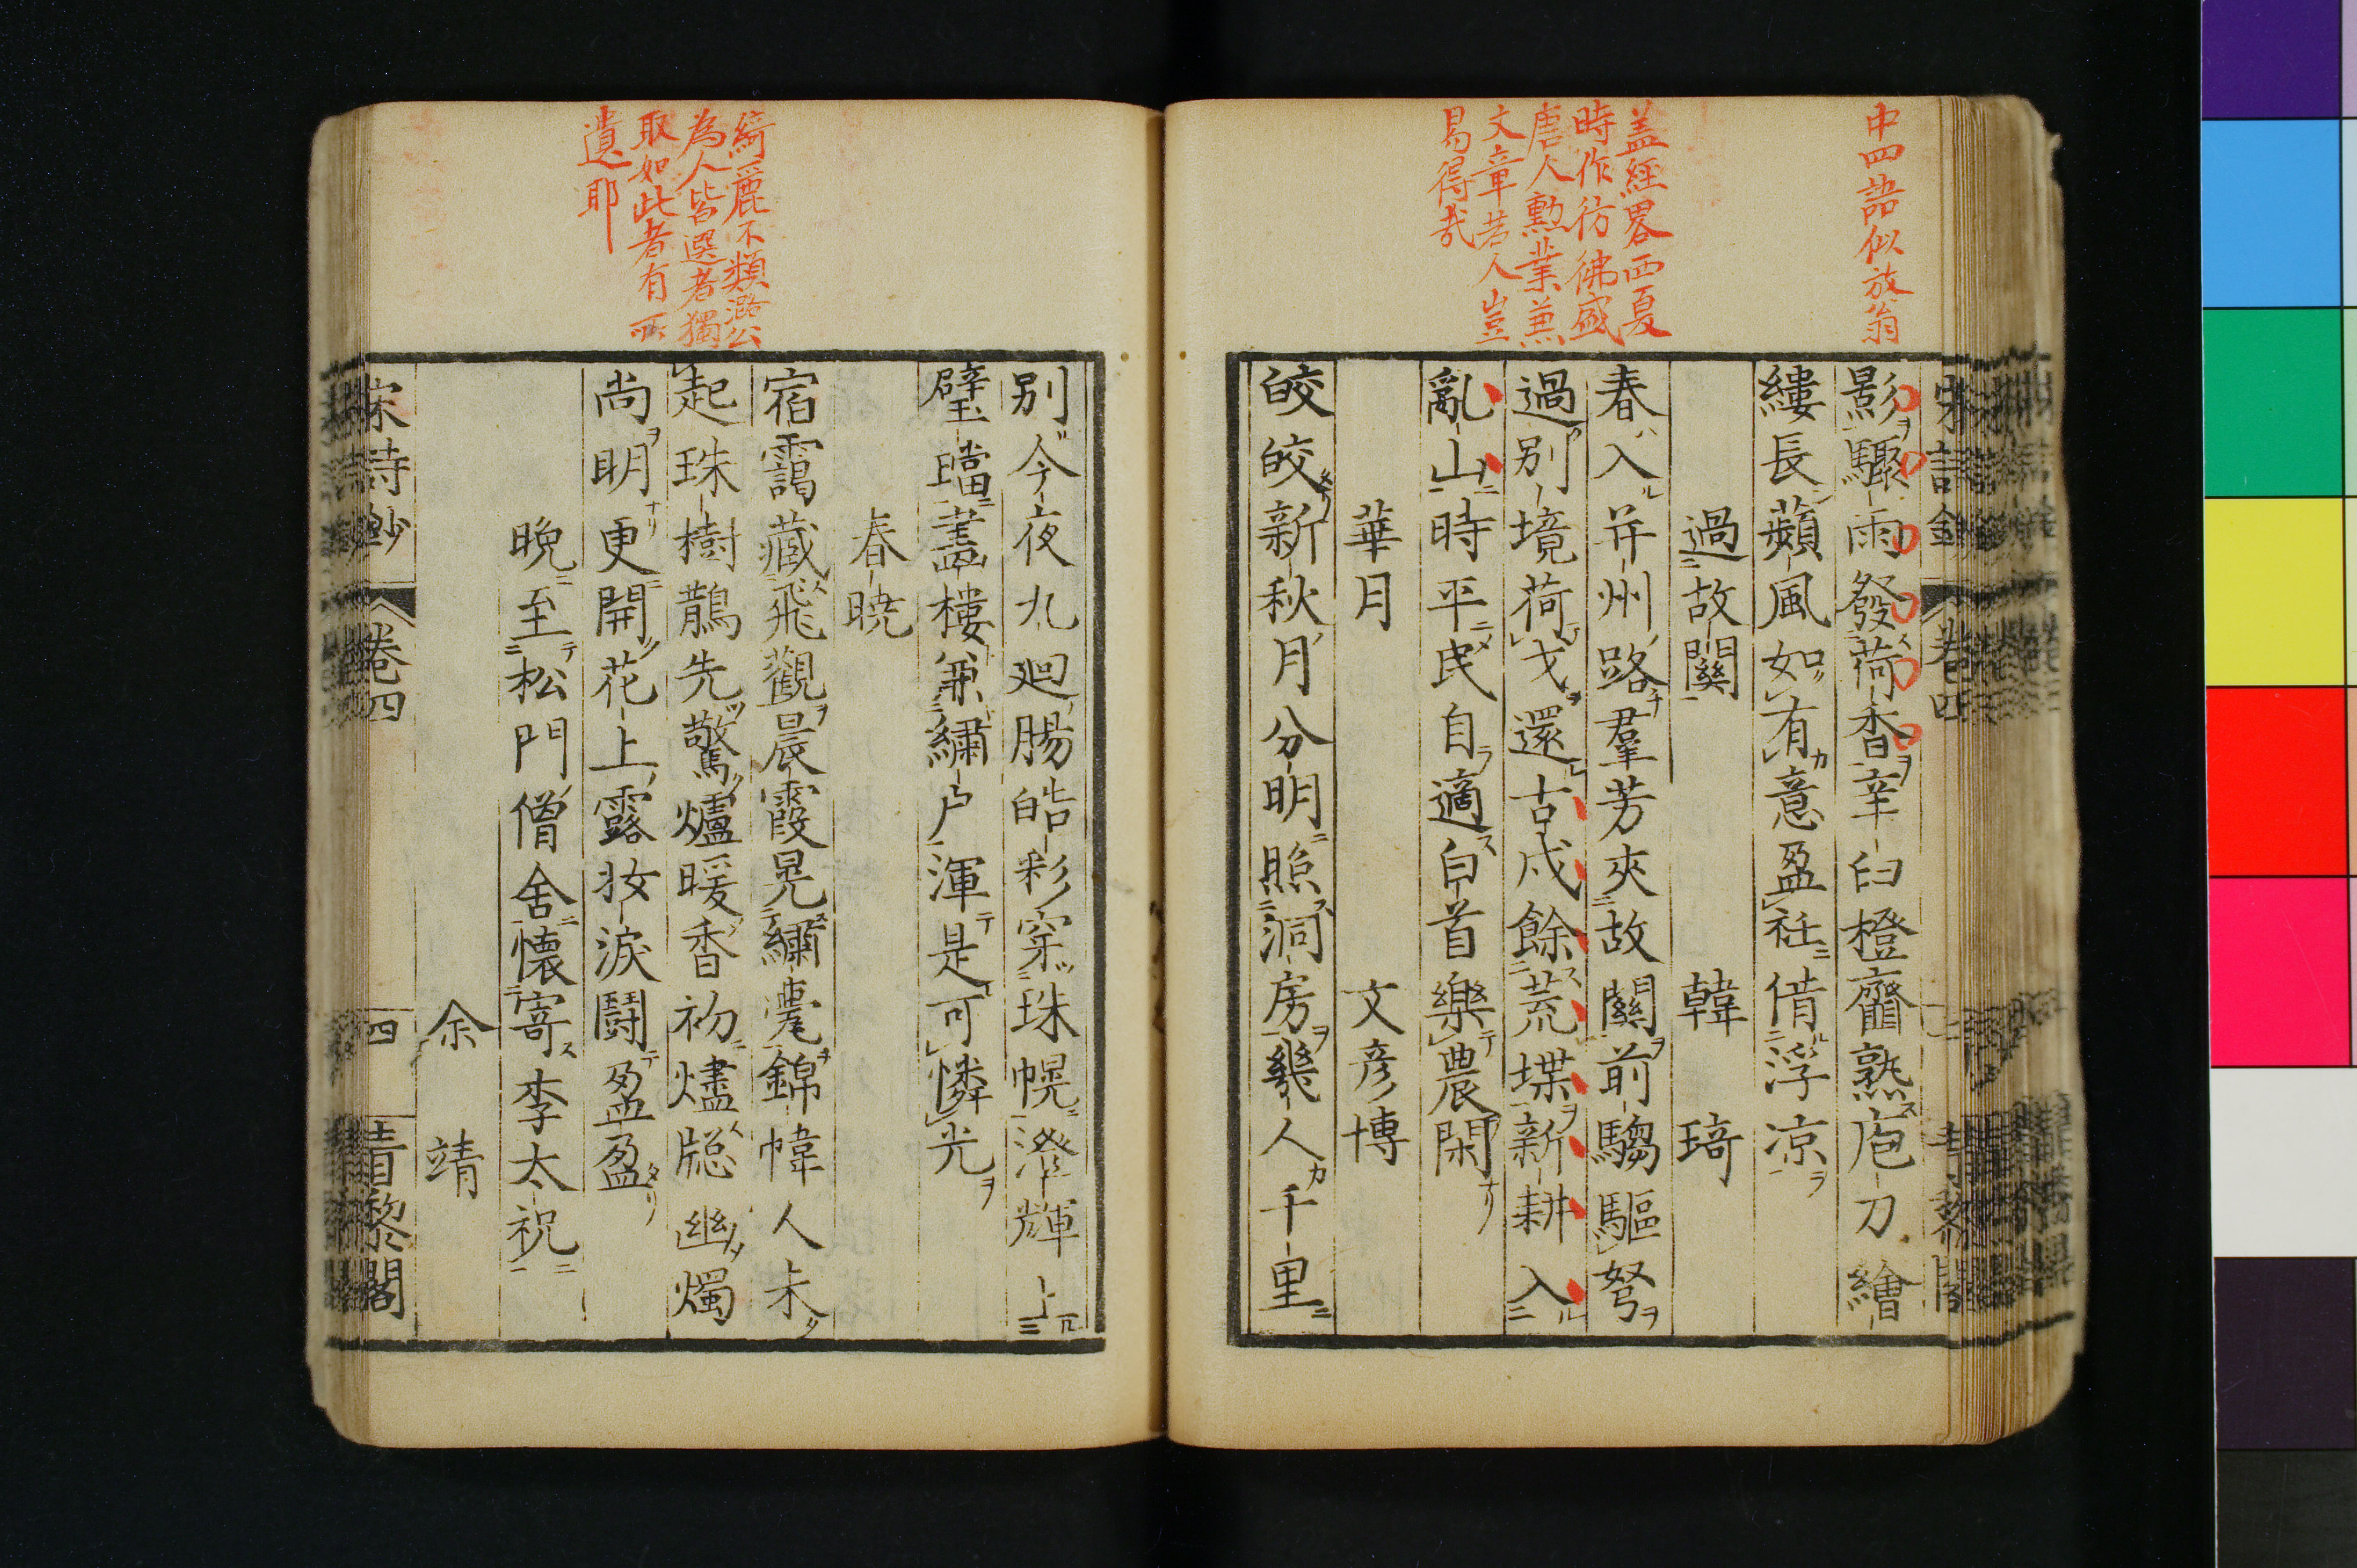 中四語似放翁
蓋經畧西夏
時作彷彿盛
唐人勲業兼
文章若人豈
易得哉
影驟雨發荷香辛臼橙虀熟庖刀繪
縷長蘋風如有意盈衽借浮涼
過故關
韓琦
春入并州路羣芳夾故關前騶驅弩
過別境荷戈還古戍餘荒堞新耕入
亂山時平民自適白首樂農閑
華月
文彦博
皎皎新秋月分明照洞房幾人千里
綺麗不類潞公
為人皆選者獨
取如此者有所
遺耶
別今夜九廻腸皓彩穿珠幌澄輝上
璧璫畫樓兼繡戶渾是可憐光
春曉
宿靄藏飛觀晨霞晃繡甍錦幃人未
起珠樹鵲先驚爐暖香初燼牎幽燭
尚明更開花上露妝淚鬪盈盈
晩至松門僧舍懷寄李太祝
余靖
宋詩鈔
卷四
四
青黎閣